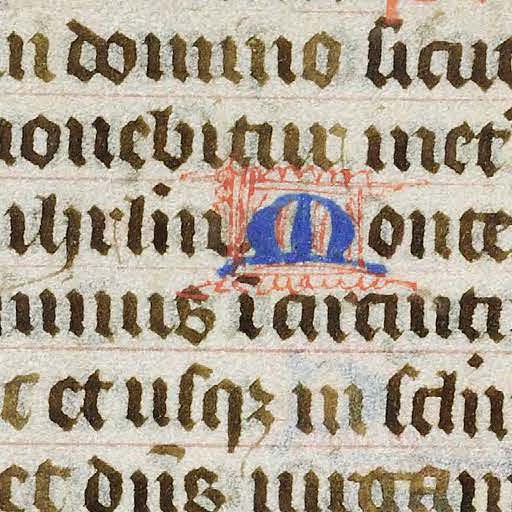 in domino sicut
mouebitur in et
ihrlm Monte
minus i circuit
c et usqz in sclm
et dns uirgam